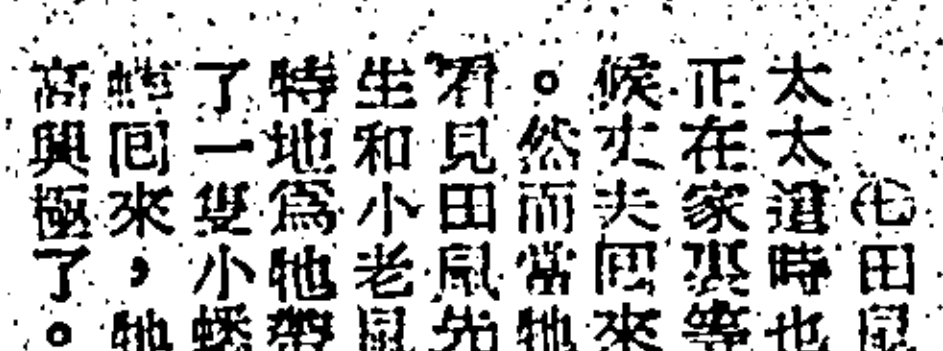 ㈦田鼠
太太這時也
正在家裏等
候丈夫囘來
。然而當牠
看見田鼠先
生和小老鼠
特地爲牠帶
了一隻小蟋
蟀囘來，牠
高興極了。